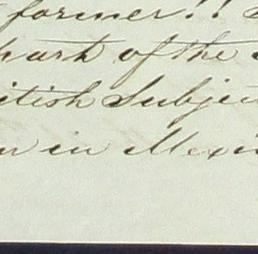 former!!
part of the
itish Subjec
n in Mexi